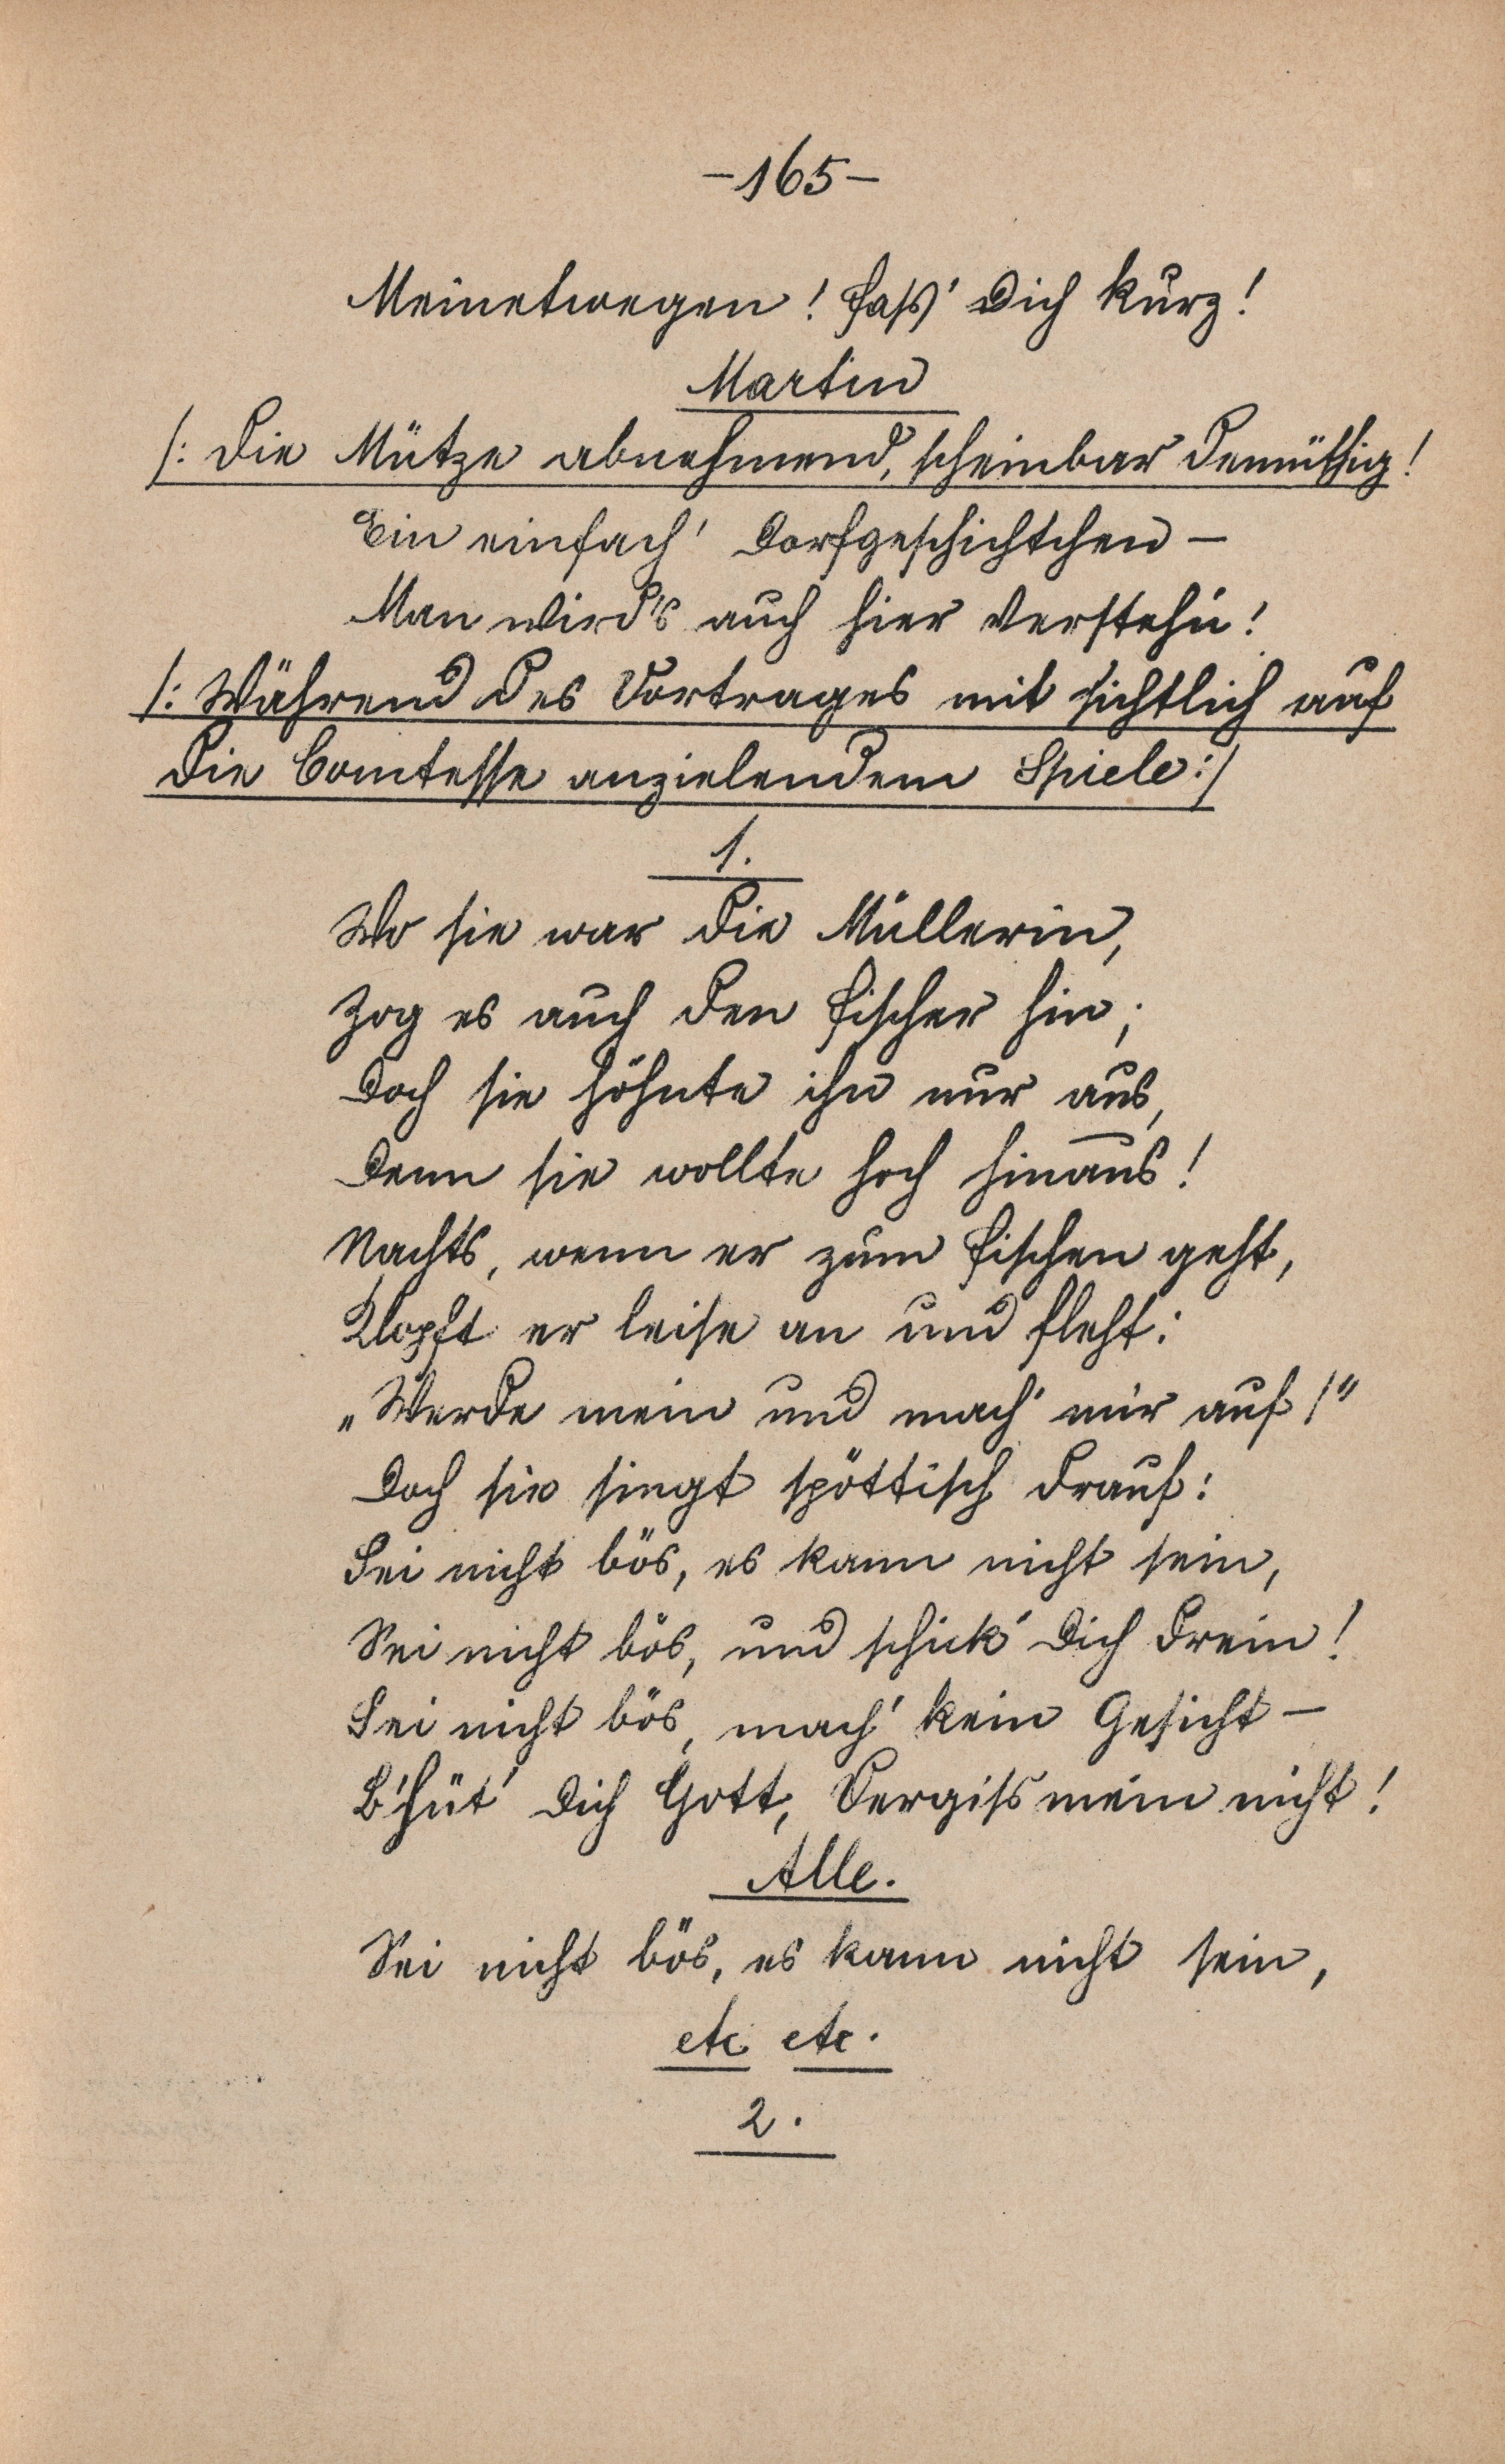 -165-
Meinetwegen! Fass' Dich kurz!
Martin
/: Die Mütze abnehmend, scheinbar demüthig!
Ein einfach' Dorfgeschichtchen –
Man wird's auch hier verstehn!
/: Während des Vortrages mit sichtlich auf
die Comtesse anzielendem Spiele :/
1.
Wo sie war die Müllerin,
Zog es auch den Fischer hin;
Doch sie höhnte ihn nur aus,
Denn sie wollte hoch hinaus!
Nachts, wenn er zum Fischen geht,
Klopft er leise an und fleht:
„Werde mein und mach' mir auf!"
Doch sie singt spöttisch drauf:
Sei nicht bös, es kann nicht sein,
Sei nicht bös, und schick' Dich drein!
Sei nicht bös, mach' kein Gesicht –
B'hüt' Dich Gott, Vergiss mein nicht!
Alle.
Sei nicht bös, es kann nicht sein,
etc etc.
2.